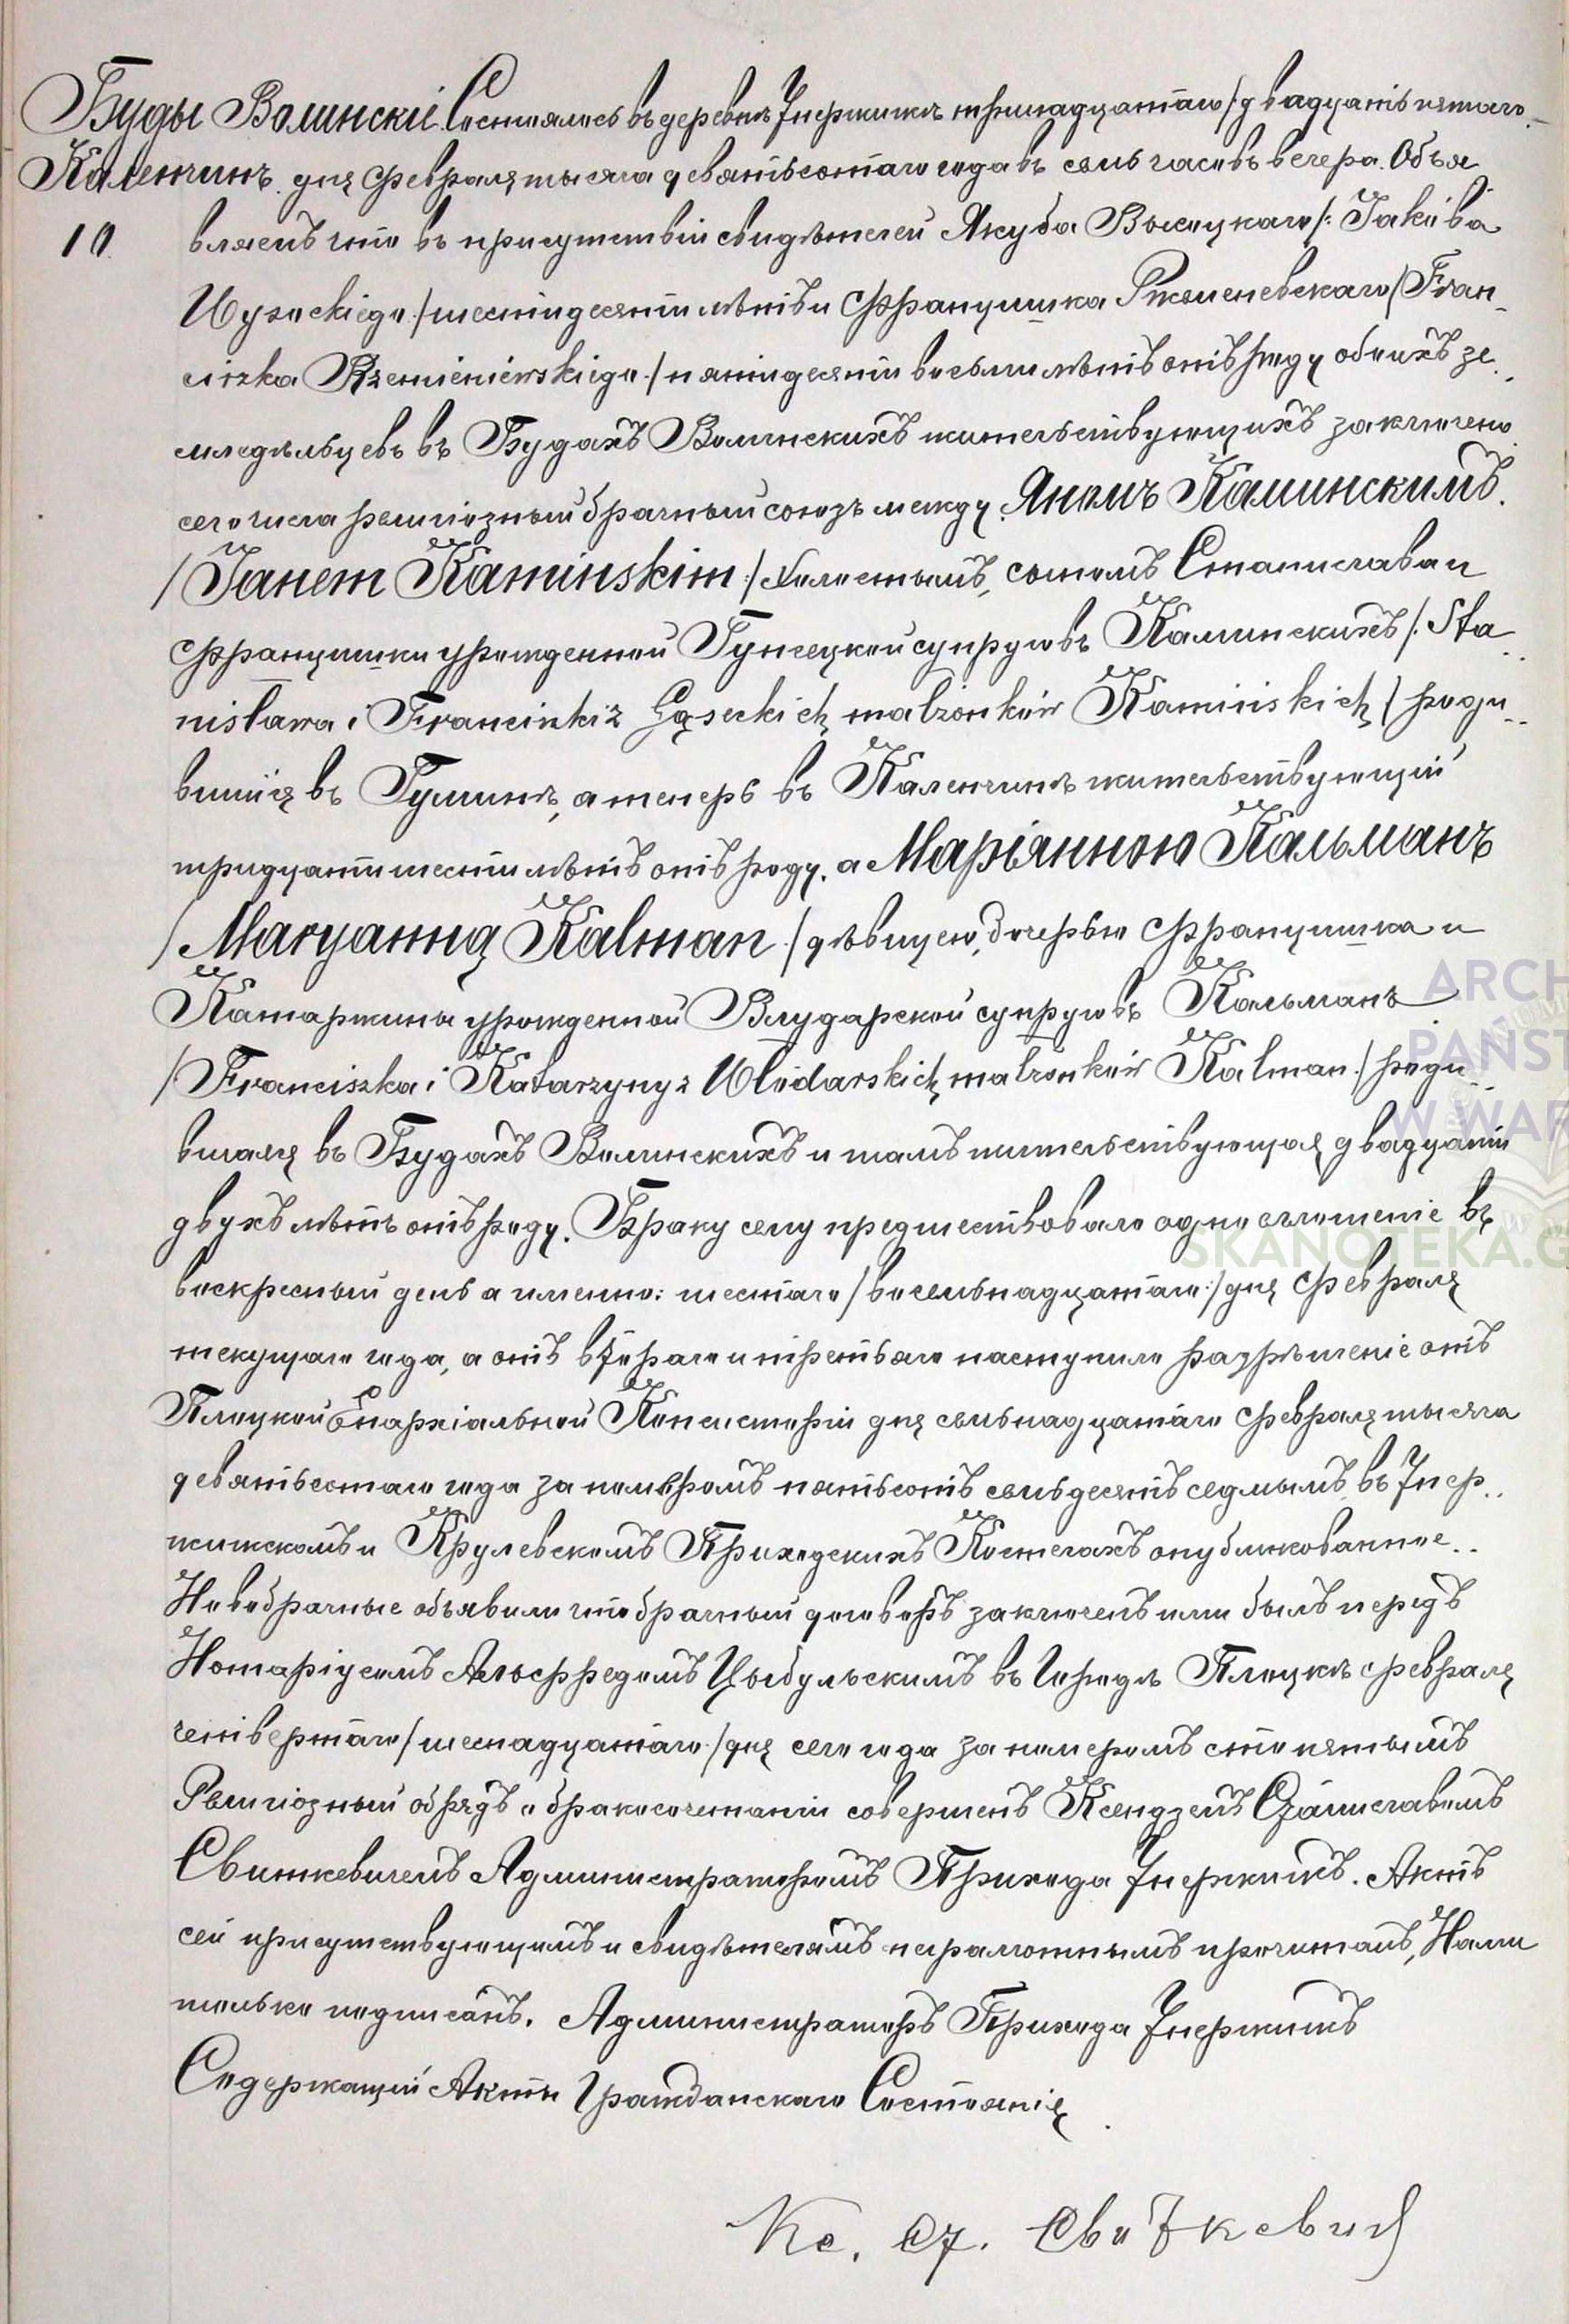 Буды Волинскіе. Состоялось въ деревнѣ Імержижѣ тринадцатаго / двадцать пятаго
Каленчинъ. дня Февраля тысяча девятьсотаго года въ семь часовъ вечера. Объя
10 вляемъ что въ присутствіи свидѣтелей Якуба Высоцкаго /: Jakóba
Wysockiego / шестидесяти лѣтъ и Францишка Ржеменевскаго / Fran-
ciszka Rzemieniewskiego / пятидесяти восьми лѣтъ отъ роду обоихъ зе-
мледѣльцевъ въ Будахъ Волинскихъ жительствующихъ заключено
сего числа религіозный брачный союзъ между Яномъ Каминскимъ.
/ Janem Kamińskim / холостымъ, сыномъ Станислава и
Францишки урожденной Гонсецкой супруговъ Каминскихъ /: Sta-
nisława i Franciszki z Gąseckich małżonków Kamińskich / роди-
вшійся въ Гулинѣ, а теперь въ Каленчинѣ жительствующій
тридцати шести лѣтъ отъ роду, а Маріянною Кальманъ
/ Maryanną Kalman / дѣвицею, дочерью Францишка и
Катаржины урожденной Влударской супруговъ Кальманъ
/ Franciszka i Katarzyny z Włodarskich małżonków Kalman / роди-
вшаяся въ Будахъ Волинскихъ и тамъ жительствующая двадцати
двухъ лѣтъ отъ роду. Браку сему предшествовало одно оглашеніе въ
воскресный день а именно: шестаго / восемьнадцатаго / дня Февраля
текущаго года, а отъ втораго и третьяго наступило разрѣшеніе отъ
Плоцкой Епархіальной Консисторіи дня семьнадцатаго Февраля тысяча
девятьсотаго года за номеромъ пятьсотъ семьдесятъ седмымъ въ
и Крулевскомъ Приходскихъ Костелахъ опубликованное.
Новобрачные объявили что брачный договоръ заключенъ ими былъ передъ
Нотаріусомъ Альфредомъ Цыбульскимъ въ городѣ Плоцкѣ Февраля
четвертаго / шеснадцатаго / дня сего года за номеромъ сто пятымъ
Религіозный обрядъ о бракосочетаніи совершенъ Ксендзомъ Станиславомъ
Свиткевичемъ Администраторомъ Прихода. Актъ
сей присутствующимъ и свидѣтелямъ неграмотнымъ прочитанъ, Нами
только подписанъ. Администраторъ Прихода
Содержащій Акты Гражданскаго Состоянія
Кс. Ст. Свиткевичъ
ARCH
PAŃST
W WAR
SKANOTEKA.G